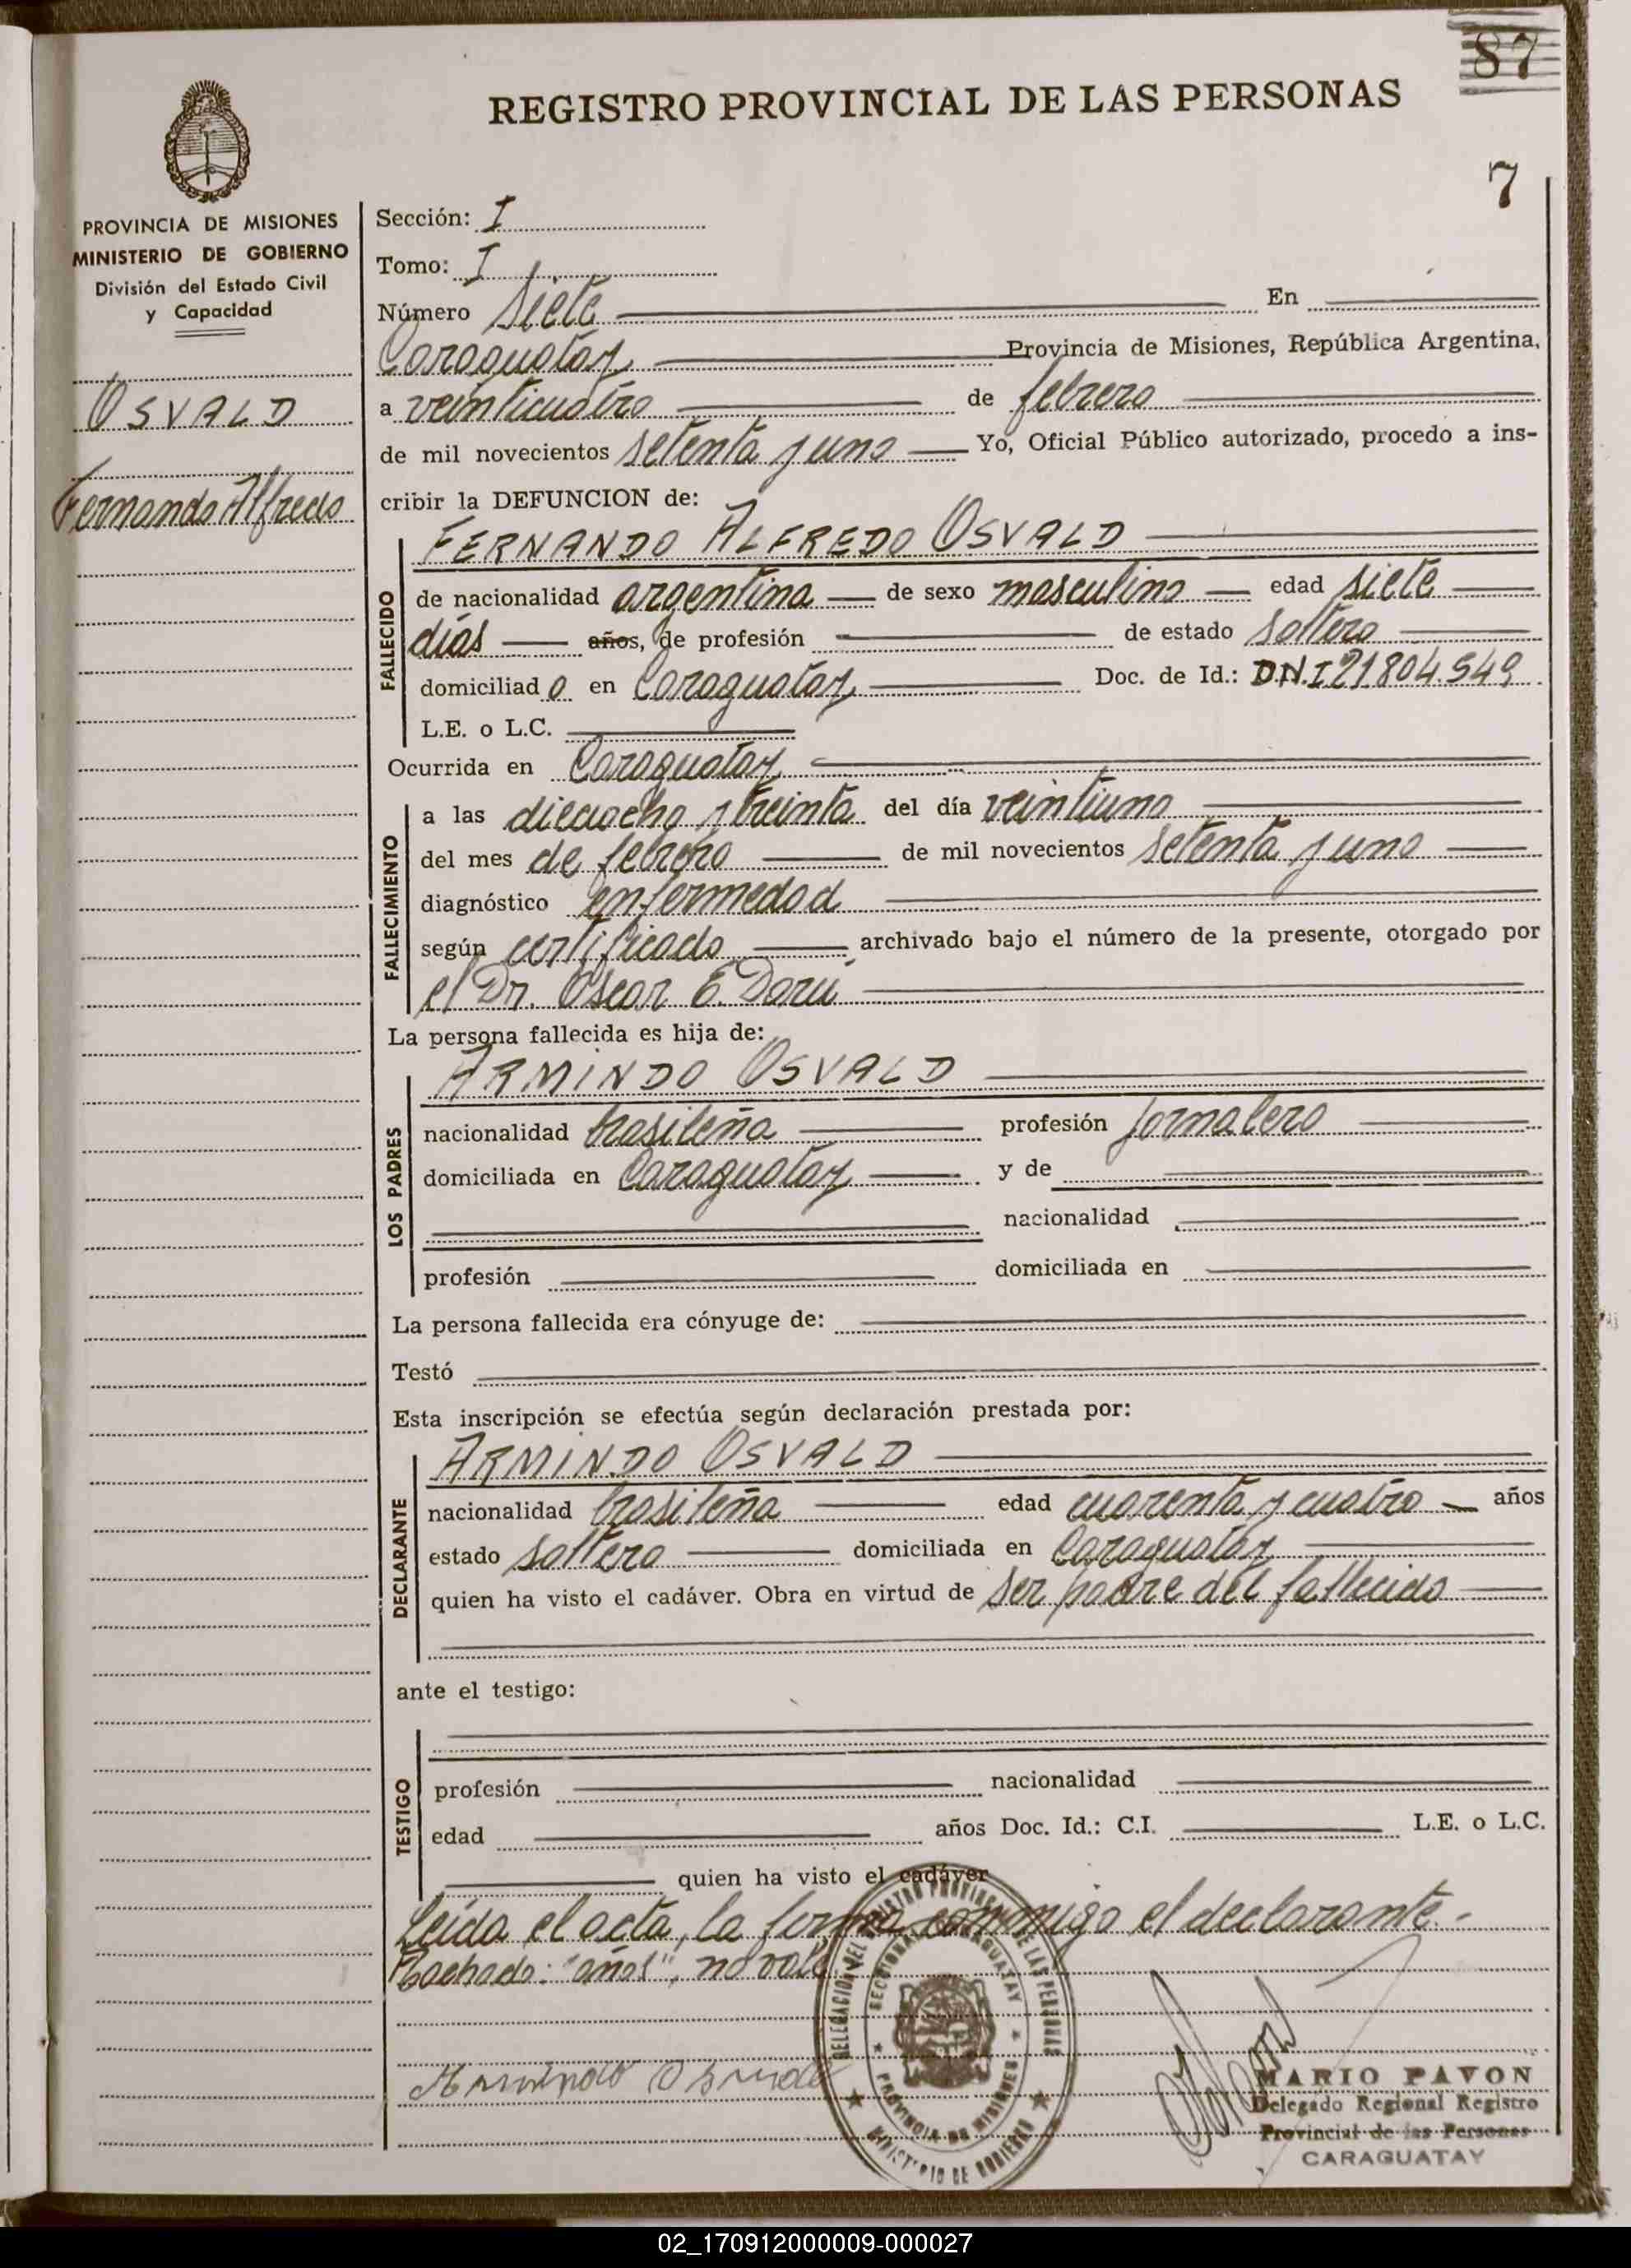 87
REGISTRO PROVINCIAL DE LAS PERSONAS
7
PROVINCIA DE MISIONES
MINISTERIO DE GOBIERNO
División del Estado Civil
y Capacidad
OSVALD
Fernando Alfredo
Sección: I
Tomo: I
Número siete En
Caraguatay Provincia de Misiones, República Argentina,
a veinticuatro de febrero
de mil novecientos setenta y uno Yo, Oficial Público autorizado, procedo a ins-
cribir la DEFUNCION de:
FERNANDO ALFREDO OSVALD
FALLECIDO
de nacionalidad argentina de sexo masculino edad siete
días años, de profesión de estado soltero
domiciliado en Caraguatay Doc. de Id.: D.N.I 21.804.549
L.E. o L.C.
Ocurrida en Caraguatay
FALLECIMIENTO
a las dieciocho y treinta del día veintiuno
del mes de febrero de mil novecientos setenta y uno
diagnóstico enfermedad
según certificado archivado bajo el número de la presente, otorgado por
el Dr. Oscar E.
La persona fallecida es hija de:
ARMINDO OSVALD
LOS PADRES
nacionalidad brasileña profesión jornalero
domiciliada en Caraguatay y de
nacionalidad
profesión domiciliada en
La persona fallecida era cónyuge de:
Testó
Esta inscripción se efectúa según declaración prestada por:
ARMINDO OSVALD
DECLARANTE
nacionalidad brasileña edad cuarenta y cuatro años
estado soltero domiciliada en Caraguatay
quien ha visto el cadáver. Obra en virtud de ser padre del fallecido
ante el testigo:
TESTIGO
profesión nacionalidad
edad años Doc. Id.: C.I. L.E. o L.C.
quien ha visto el cadáver
Leída el acta, la firma conmigo el declarante.-
Tachado: "años", no vale
DELEGACION DEL REGISTRO PROVINCIAL DE LAS PERSONAS
SECCIONAL CARAGUATAY
PROVINCIA DE MISIONES
MINISTERIO DE GOBIERNO
MARIO PAVON
Delegado Regional Registro
Provincial de las Personas
CARAGUATAY
02_170912000009-000027